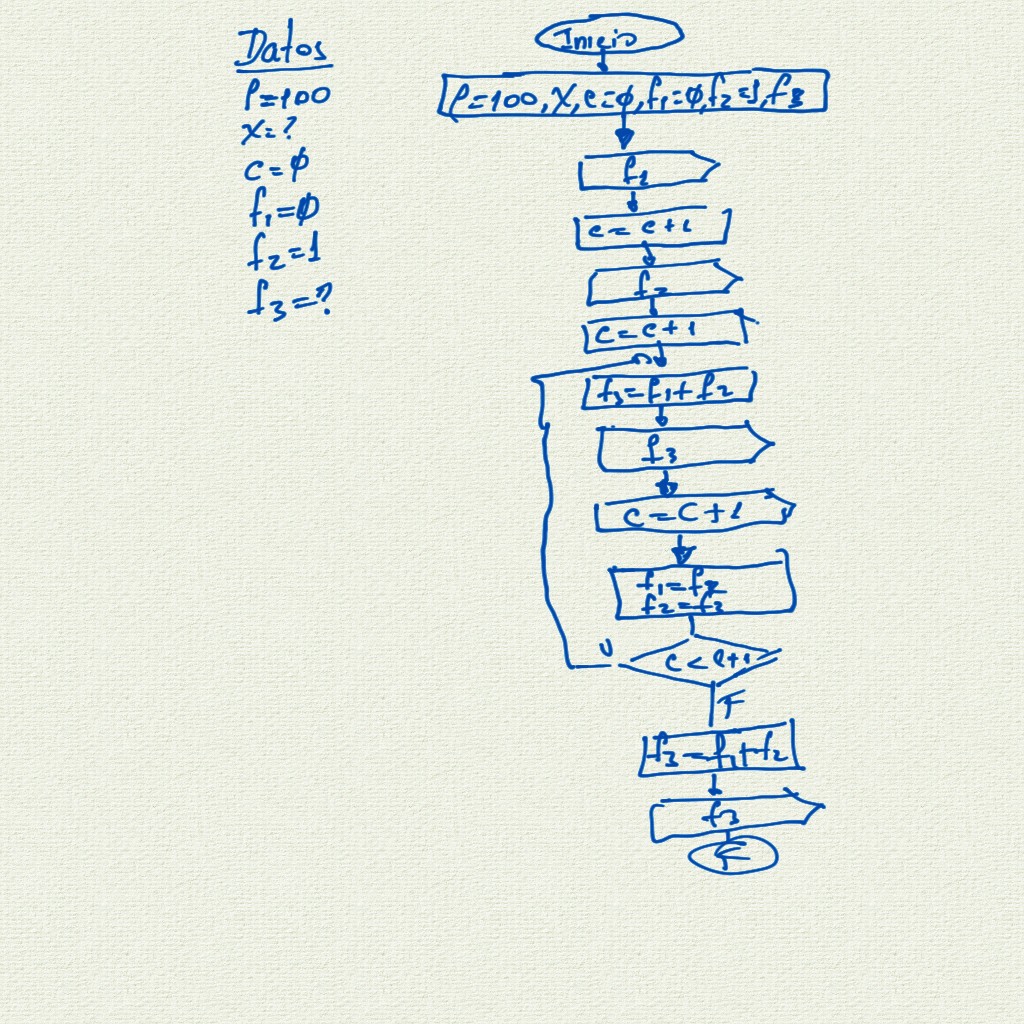 Datos
P=100
x=?
c=φ
f1=φ
f2=1
f3=?
Inicio
P=100, X, c=φ, f1=φ, f2=1, f3
f1
c=c+1
f2
c=c+1
f3=f1+f2
f3
c=c+1
f1=f2
f2=f3
V
F
f3=f1+f2
f3
F